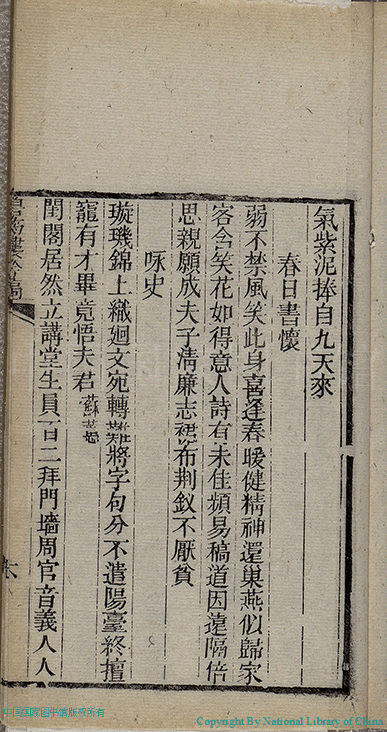 氣紫泥捧自九天來
春日書懷
弱不禁風笑此身喜逢春暖健精神還巢燕似歸家
客含笑花如得意人詩有未佳頻易稿道因遠隔倍
思親願成夫子清廉志裙布荆釵不厭貧
咏史
璇璣錦上織廻文宛轉難將字句分不遣陽臺終擅
寵有才畢竟悟夫君 蘇蕙
閨閣居然立講堂生員百二拜門墻周官音義人人
中国国家图书馆版权所有
Copyright By National Library of China